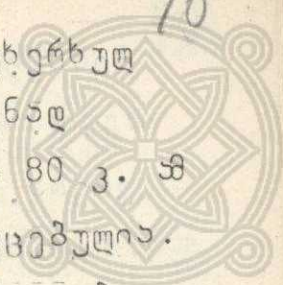 10
ხერხულ
ნად
80 კ. ამ
ცემულია.